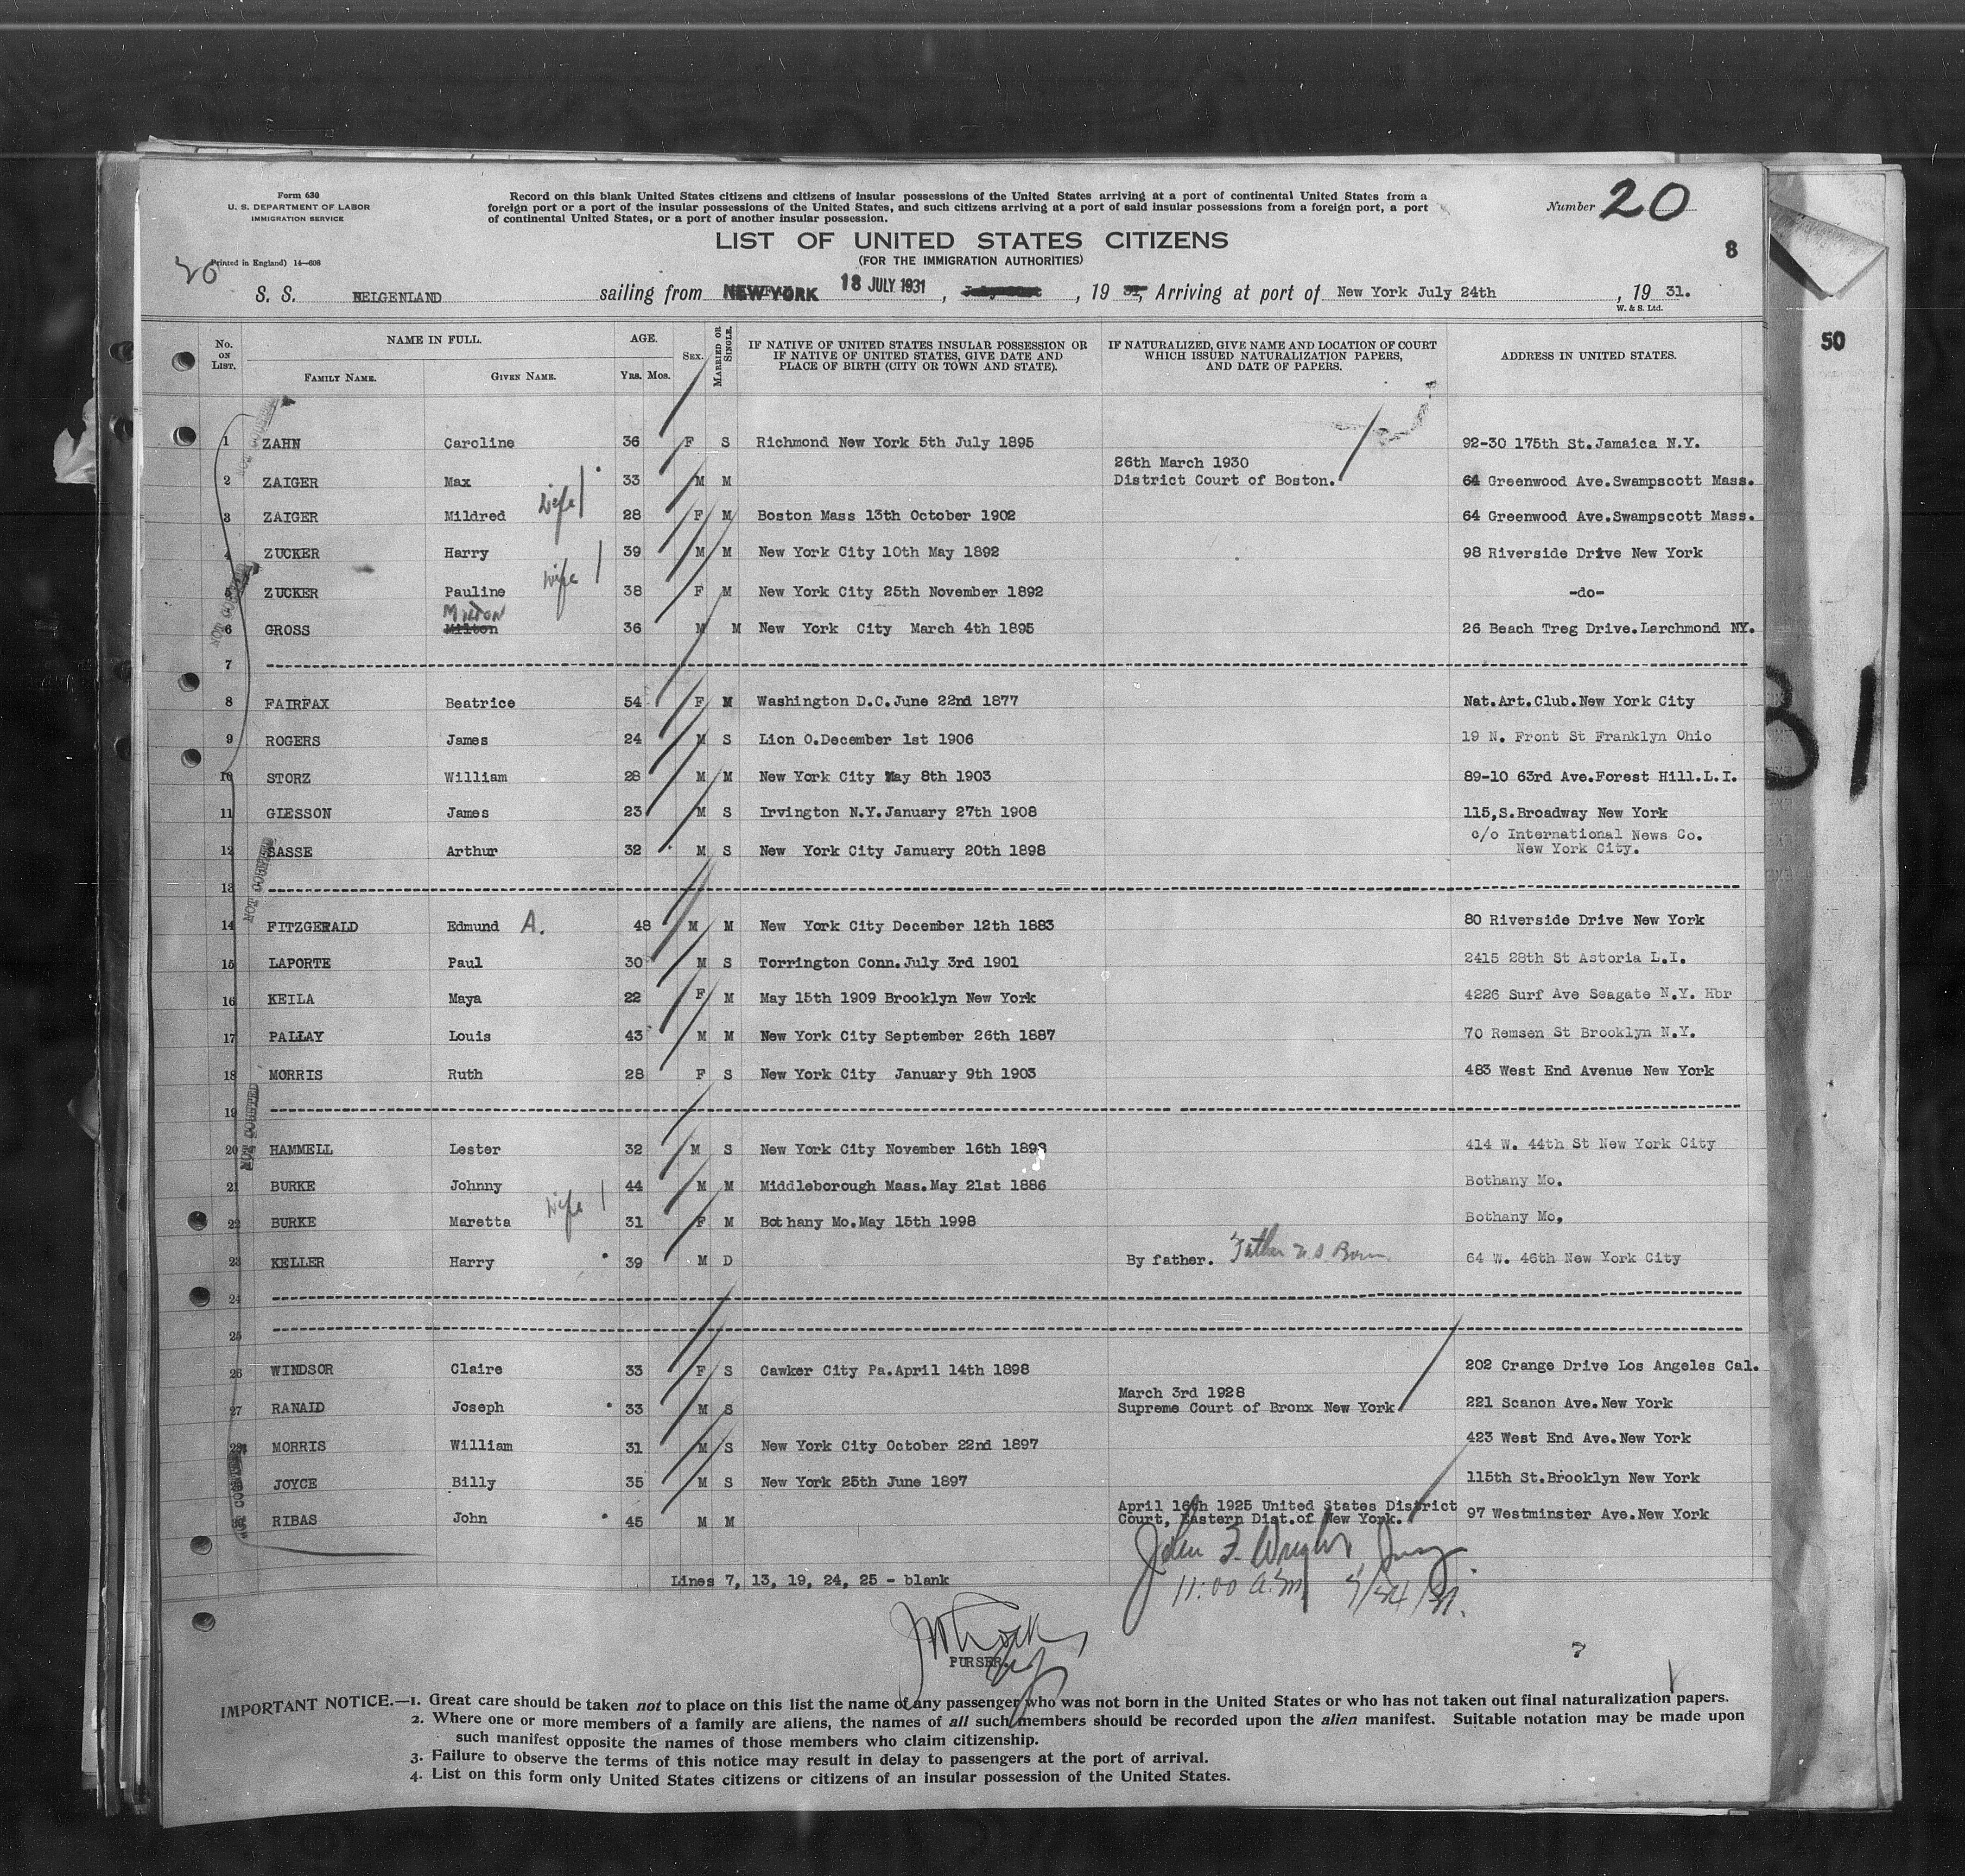 Form 630
U. S. DEPARTMENT OF LABOR
IMMIGRATION SERVICE
Record on this blank United States citizens and citizens of insular possessions of the United States arriving at a port of continental United States from a
foreign port or a port of the insular possessions of the United States, and such citizens arriving at a port of said insular possessions from a foreign port, a port
of continental United States, or a port of another insular possession.
Number 20
LIST OF UNITED STATES CITIZENS
(FOR THE IMMIGRATION AUTHORITIES)
8
Printed in England) 14—608
S. S. BELGENLAND sailing from NEW YORK 18 JULY 1931, , 19 31, Arriving at port of New York July 24th , 19 31.
W. & S. Ltd.
No. ON LIST. NAME IN FULL. FAMILY NAME. GIVEN NAME. AGE. YRS. MOS. SEX. MARRIED OR SINGLE. IF NATIVE OF UNITED STATES INSULAR POSSESSION OR IF NATIVE OF UNITED STATES, GIVE DATE AND PLACE OF BIRTH (CITY OR TOWN AND STATE). IF NATURALIZED, GIVE NAME AND LOCATION OF COURT WHICH ISSUED NATURALIZATION PAPERS, AND DATE OF PAPERS. ADDRESS IN UNITED STATES.
50
1 ZAHN Caroline 36 F S Richmond New York 5th July 1895 92-30 175th St.Jamaica N.Y.
26th March 1930
2 ZAIGER Max 33 M M District Court of Boston. 64 Greenwood Ave.Swampscott Mass.
3 ZAIGER Mildred wife 28 F M Boston Mass 13th October 1902 64 Greenwood Ave.Swampscott Mass.
4 ZUCKER Harry 39 M M New York City 10th May 1892 98 Riverside Drive New York
5 ZUCKER Pauline wife 38 F M New York City 25th November 1892 -do-
MILTON
6 GROSS Milton 36 M M New York City March 4th 1895 26 Beach Treg Drive.Larchmond NY.
7
8 FAIRFAX Beatrice 54 F M Washington D.C.June 22nd 1877 Nat.Art.Club.New York City
9 ROGERS James 24 M S Lion O.December 1st 1906 19 N. Front St Franklyn Ohio
10 STORZ William 28 M M New York City May 8th 1903 89-10 63rd Ave.Forest Hill.L.I.
11 GLESSON James 23 M S Irvington N.Y.January 27th 1908 115,S.Broadway New York
c/o International News Co.
12 SASSE Arthur 32 M S New York City January 20th 1898 New York City.
13
14 FITZGERALD Edmund A. 48 M M New York City December 12th 1883 80 Riverside Drive New York
15 LAPORTE Paul 30 M S Torrington Conn.July 3rd 1901 2415 28th St Astoria L.I.
16 KEILA Maya 22 F M May 15th 1909 Brooklyn New York 4226 Surf Ave Seagate N.Y. Hbr
17 PALLAY Louis 43 M M New York City September 26th 1887 70 Remsen St Brooklyn N.Y.
18 MORRIS Ruth 28 F S New York City January 9th 1903 483 West End Avenue New York
19
20 HAMMELL Lester 32 M S New York City November 16th 1898 414 W. 44th St New York City
21 BURKE Johnny 44 M M Middleborough Mass.May 21st 1886 Bothany Mo.
22 BURKE Maretta wife 31 F M Bothany Mo.May 15th 1998 Bothany Mo,
23 KELLER Harry 39 M D By father. Father U.S. Born 64 W. 46th New York City
24
25
26 WINDSOR Claire 33 F S Cawker City Pa.April 14th 1898 202 Crange Drive Los Angeles Cal.
March 3rd 1928
27 RANAID Joseph 33 M S Supreme Court of Bronx New York 221 Scanon Ave.New York
28 MORRIS William 31 M S New York City October 22nd 1897 423 West End Ave.New York
29 JOYCE Billy 35 M S New York 25th June 1897 115th St.Brooklyn New York
April 16th 1925 United States District
30 RIBAS John 45 M M Court, Eastern Dist.of New York. 97 Westminster Ave.New York
John F. Wright
11:00 a.m. 7/24/31.
Lines 7, 13, 19, 24, 25 - blank
PURSER.
7
IMPORTANT NOTICE.—1. Great care should be taken not to place on this list the name of any passenger who was not born in the United States or who has not taken out final naturalization papers.
2. Where one or more members of a family are aliens, the names of all such members should be recorded upon the alien manifest. Suitable notation may be made upon
such manifest opposite the names of those members who claim citizenship.
3. Failure to observe the terms of this notice may result in delay to passengers at the port of arrival.
4. List on this form only United States citizens or citizens of an insular possession of the United States.